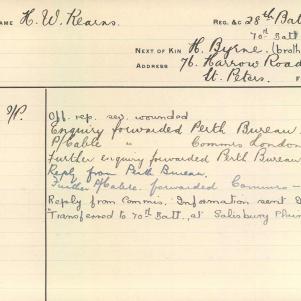 NAME H. W. Kearns. REG. &C 28th Bat
70th Batt
NEXT OF KIN H. Byrne. (broth
ADDRESS 76. Harrow Road
St. Peters.
Off. rep. sev. wounded
Enquiry forwarded Perth Bureau
P/Cable " Commis London
Further enquiry forwarded Perth Bureau
Reply from Perth Bureau.
Further P/Cable. forwarded Commis
Reply from Commis. Information sent D
"Transferred to 70th Batt., at Salisbury Plain